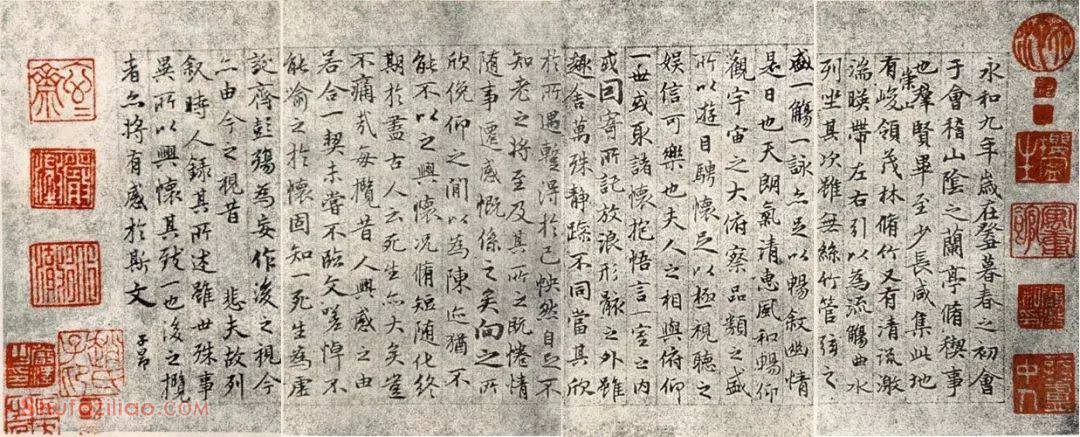 永和九年歲在癸丑暮春之初會
于會稽山陰之蘭亭脩稧事
也羣賢畢至少長咸集此地
有崇山峻領茂林脩竹又有清流激
湍暎帶左右引以為流觴曲水
列坐其次雖無絲竹管弦之
盛一觴一詠亦足以暢叙幽情
是日也天朗氣清惠風和暢仰
觀宇宙之大俯察品類之盛
所以遊目騁懷足以極視聽之
娛信可樂也夫人之相與俯仰
一世或取諸懷抱悟言一室之内
或因寄所託放浪形骸之外雖
趣舍萬殊静躁不同當其欣
於所遇蹔得於己怏然自足不
知老之將至及其所之既惓情
隨事遷感慨係之矣向之所
欣俛仰之閒以為陳迹猶不
能不以之興懷况脩短隨化終
期於盡古人云死生亦大矣豈
不痛哉每攬昔人興感之由
若合一契未嘗不臨文嗟悼不
能喻之於懷固知一死生為虛
誕齊彭殤為妄作後之視今
亦由今之視昔 悲夫故列
叙時人錄其所述雖世殊事
異所以興懷其致一也後之攬
者亦將有感於斯文
子昂
趙氏子昂
shufaziliao.com